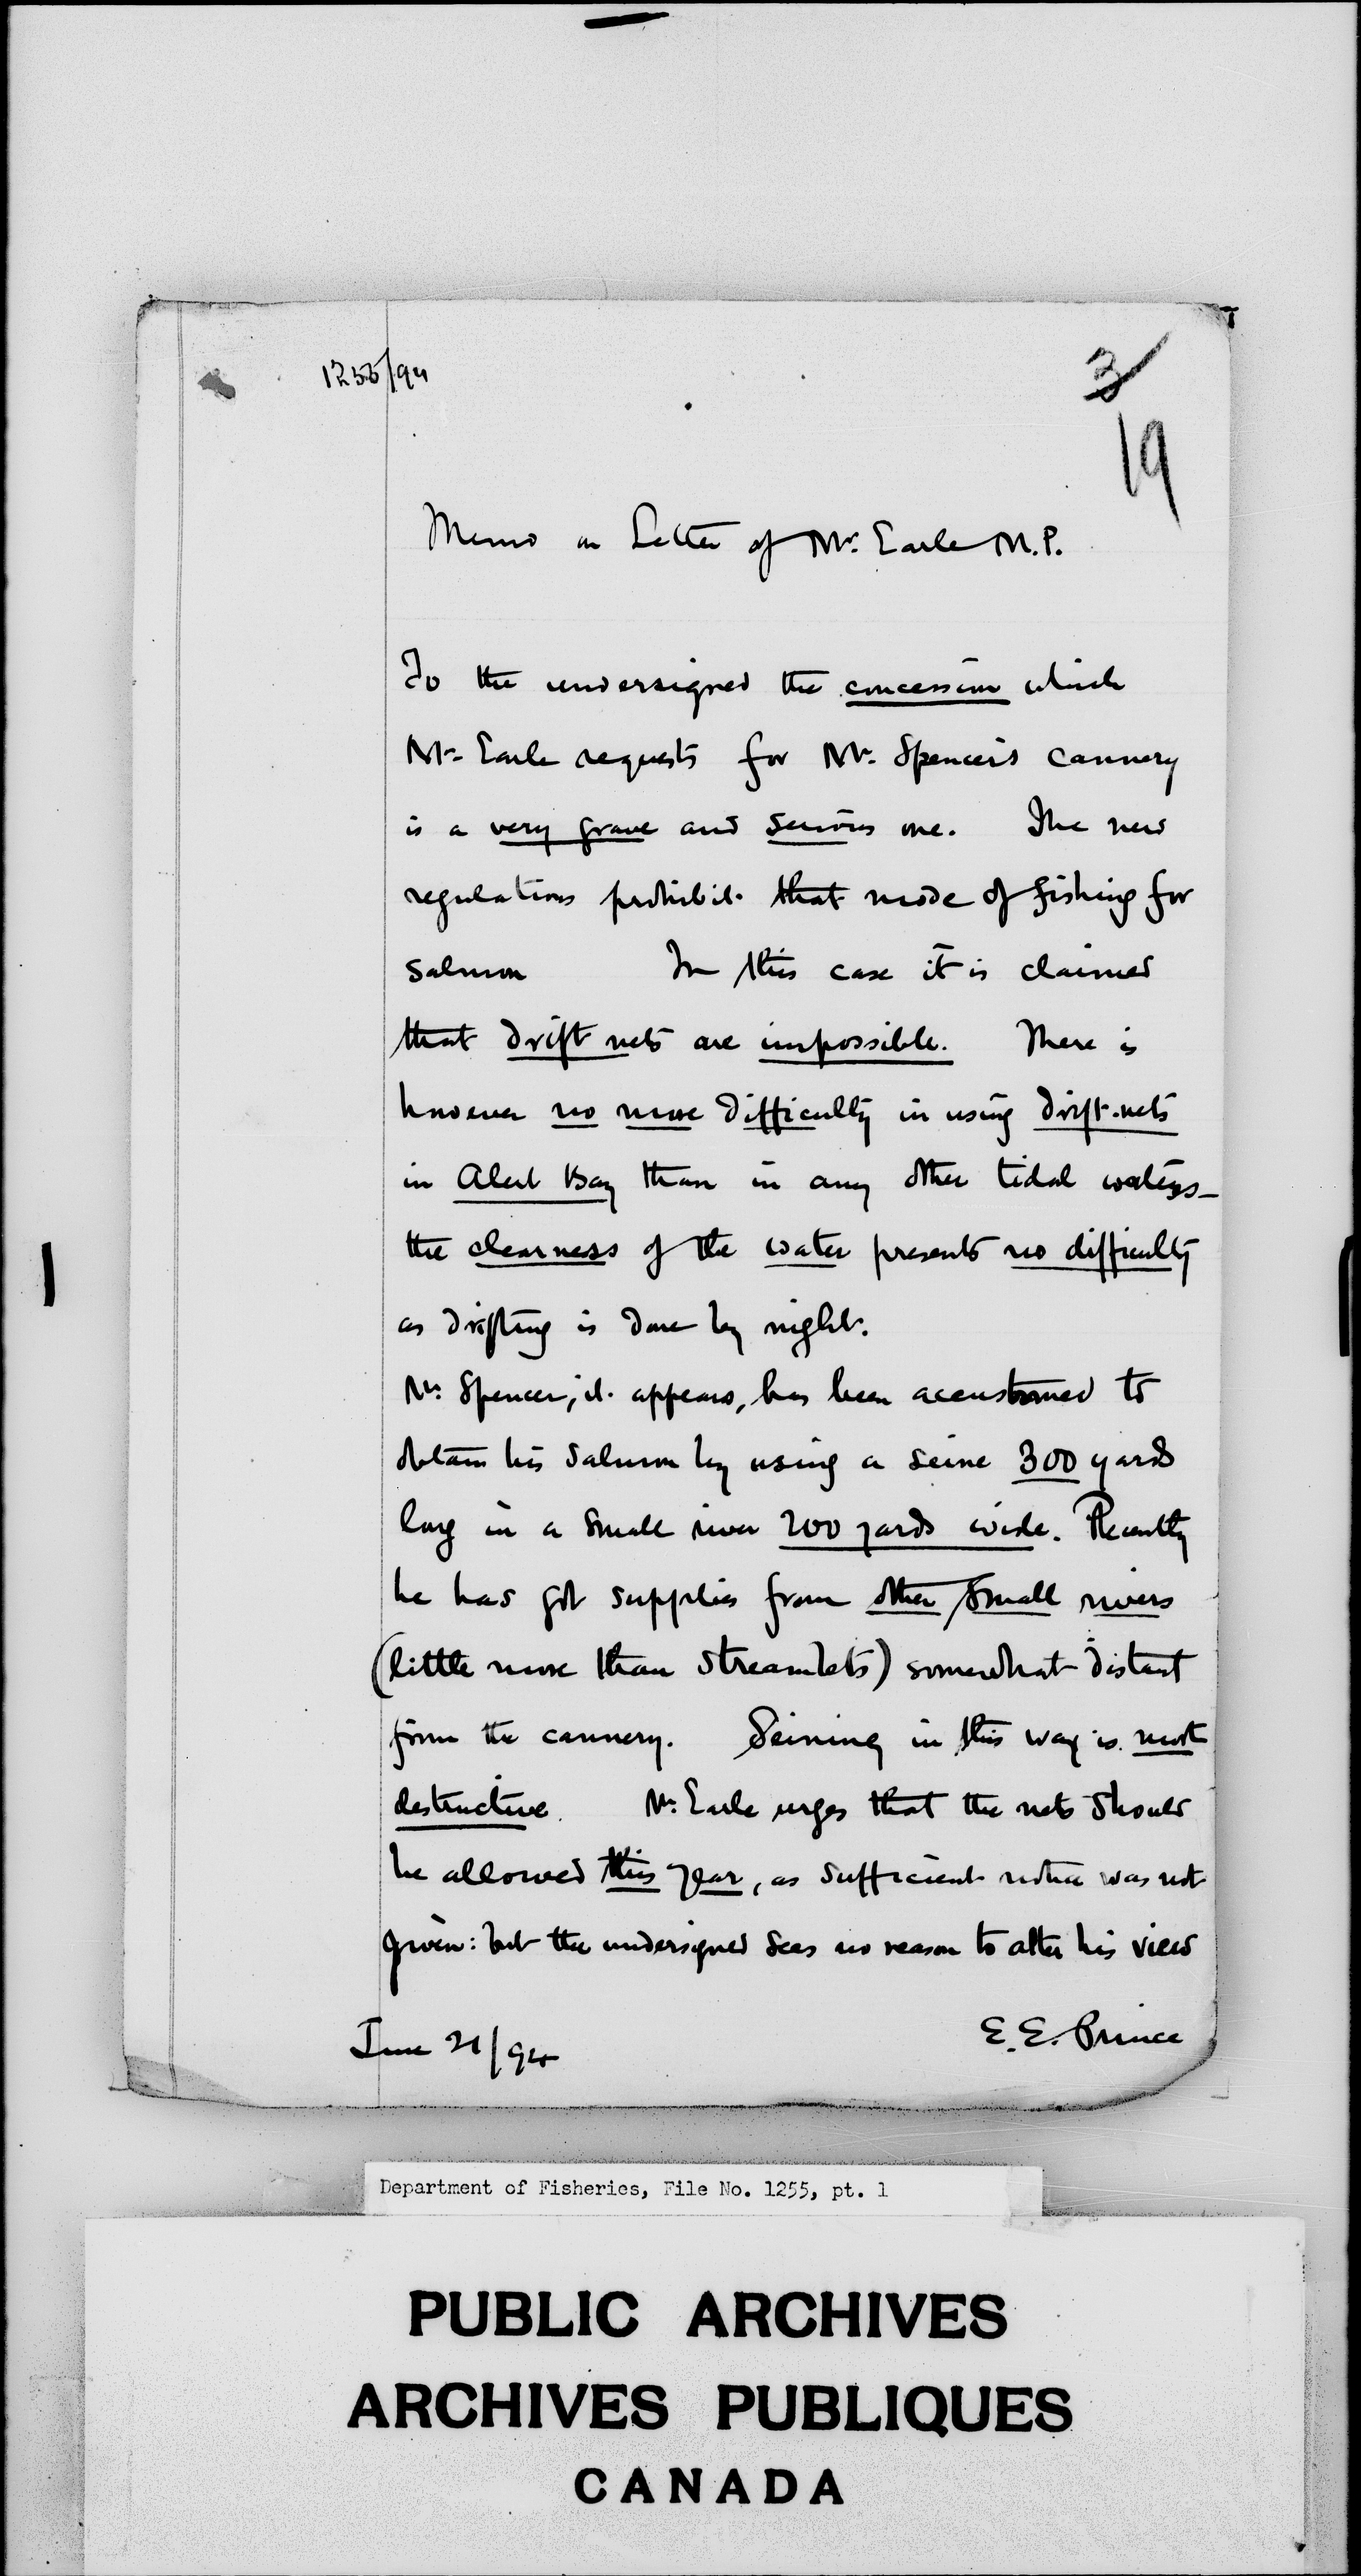 1255/94
3
19
Memo on Letter of Mr. Earle M.P.
To the undersigned the concession which
Mr. Earle requests for Mr. Spencer's cannery
is a very grave and serious one. The new
regulations prohibit that mode of fishing for
salmon In this case it is claimed
that drift nets are impossible. There is
however no more difficulty in using drift-nets
in Alert Bay than in any other tidal waters—
the clearness of the water presents no difficulty
as drifting is done by night.
Mr. Spencer, it appears, has been accustomed to
obtain his salmon by using a seine 300 yards
long in a small river 200 yards wide. Recently
he has got supplies from other small rivers
(little more than streamlets) somewhat distant
from the cannery. Seining in this way is most
destructive. Mr. Earle urges that the nets should
be allowed this year, as sufficient notice was not
given: but the undersigned sees no reason to alter his view
E. E. Prince
June 21/94
Department of Fisheries, File No. 1255, pt. 1
PUBLIC ARCHIVES
ARCHIVES PUBLIQUES
CANADA